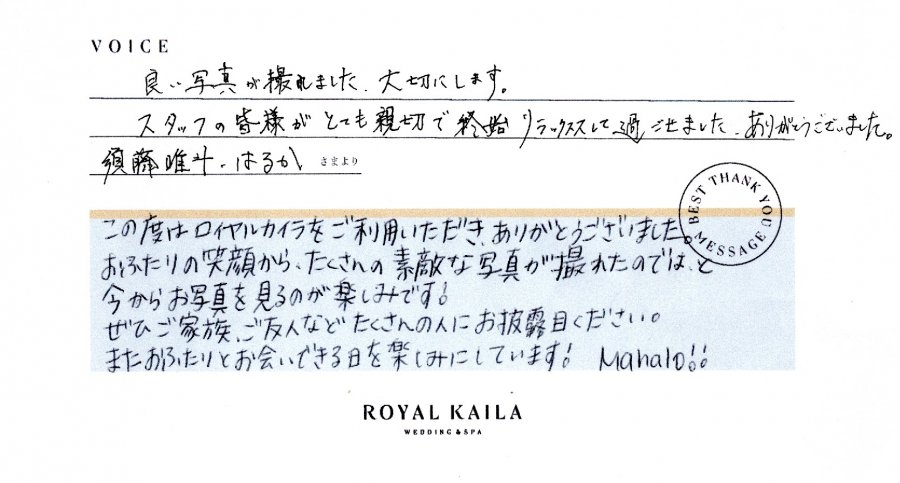 VOICE
良い写真が撮れました、大切にします。
スタッフの皆様がとても親切で終始リラックスして過ごせました、ありがとうございました。
須藤唯斗・はるか さまより
BEST THANK YOU MESSAGE
この度はロイヤルカイラをご利用いただき、ありがとうございました。
おふたりの笑顔から、たくさんの素敵な写真が撮れたのでは、と
今からお写真を見るのが楽しみです!
ぜひご家族、ご友人などたくさんの人にお披露目ください。
またおふたりとお会いできる日を楽しみにしています! Mahalo!!
ROYAL KAILA
WEDDING & SPA